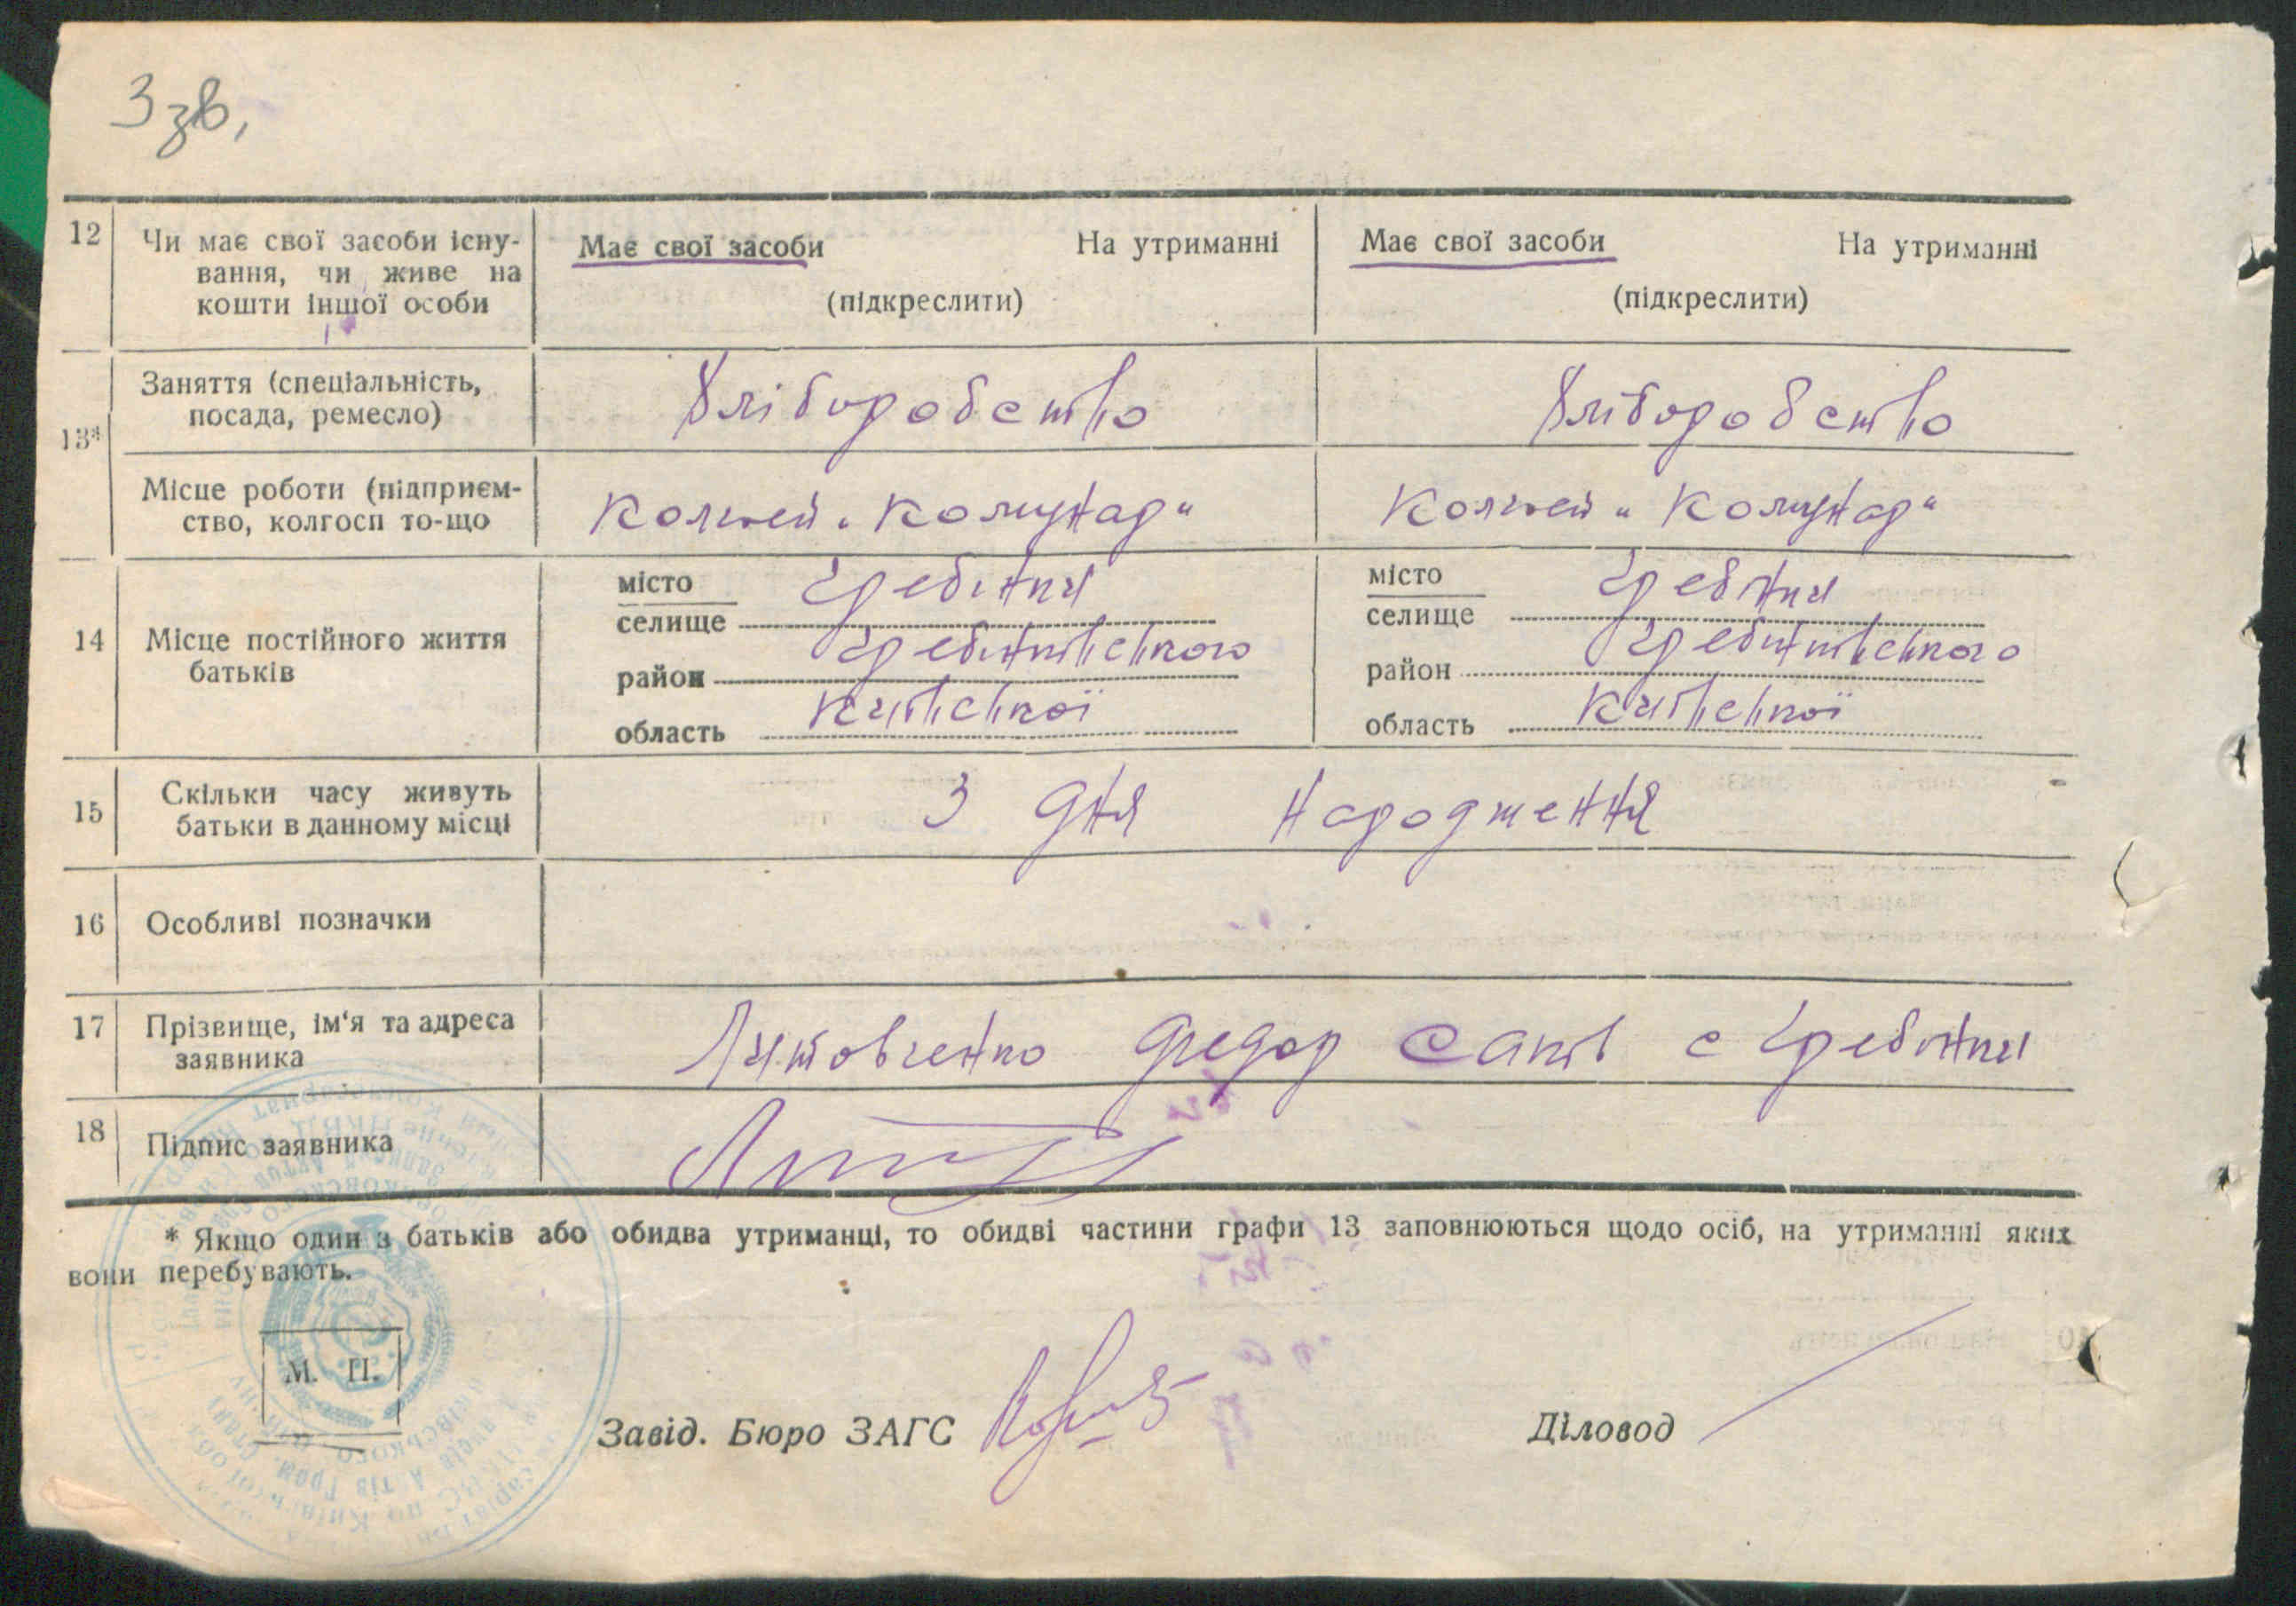 3 зв,
12 Чи має свої засоби існу- Має свої засоби На утриманні Має свої засоби На утриманні
вання, чи живе на
кошти іншої особи (підкреслити) (підкреслити)
13* Заняття (спеціальність, Хліборобство Хліборобство
посада, ремесло)
Місце роботи (підприєм- „Комунар" „Комунар"
ство, колгосп то-що
14 Місце постійного життя
батьків
місто Гребінки місто Гребінки
селище селище
район Гребінківського район Гребінківського
область Київської область Київської
15 Скільки часу живуть З дня народження
батьки в данному місці
16 Особливі позначки
17 Прізвище, ім'я та адреса Литовченко Федор с Гребінки
заявника
18 Підпис заявника
* Якщо один з батьків або обидва утриманці, то обидві частини графи 13 заповнюються щодо осіб, на утриманні яких
вони перебувають.
М. П.
Завід. Бюро ЗАГС Діловод